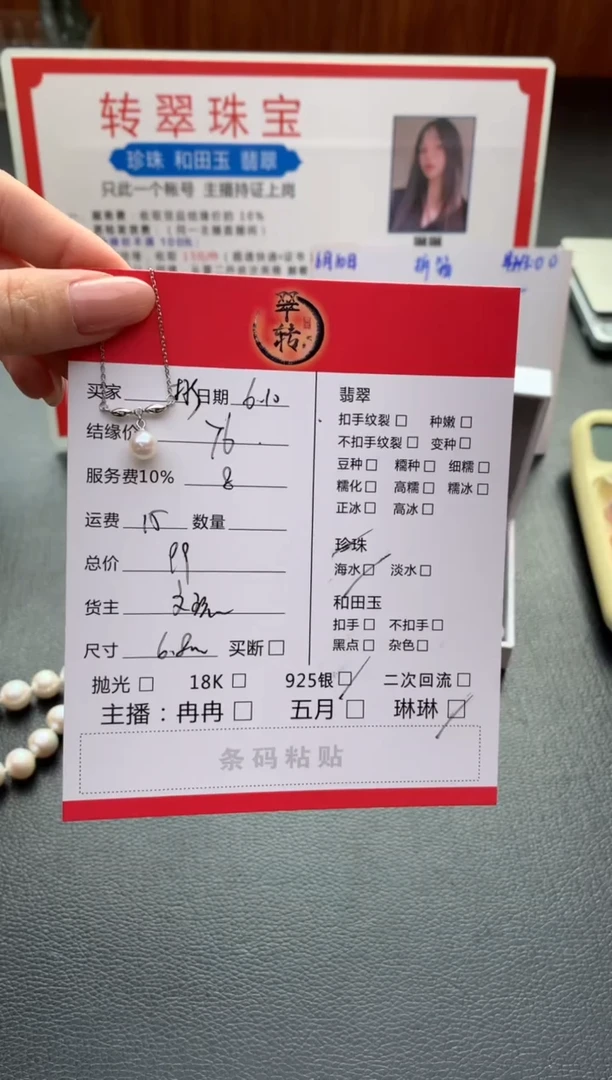 转翠珠宝
珍珠 和田玉 翡翠
只此一个帐号 主播持证上岗
6月10日
翠转
买家 日期 6.10
结缘价 76
服务费10% 8
运费 15 数量
总价 99
货主
尺寸 6.8m 买断□
翡翠
扣手纹裂□ 种嫩□
不扣手纹裂□ 变种□
豆种□ 糯种□ 细糯□
糯化□ 高糯□ 糯冰□
正冰□ 高冰□
珍珠
海水□ 淡水□
和田玉
扣手□ 不扣手□
黑点□ 杂色□
抛光□ 18K□ 925银□ 二次回流□
主播：冉冉□ 五月□ 琳琳□
条码粘贴